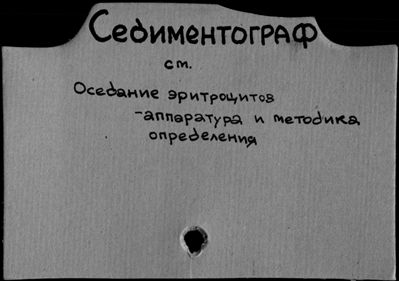 Седиментограф
см.
Оседание эритроцитов
-аппаратура и методика
определения